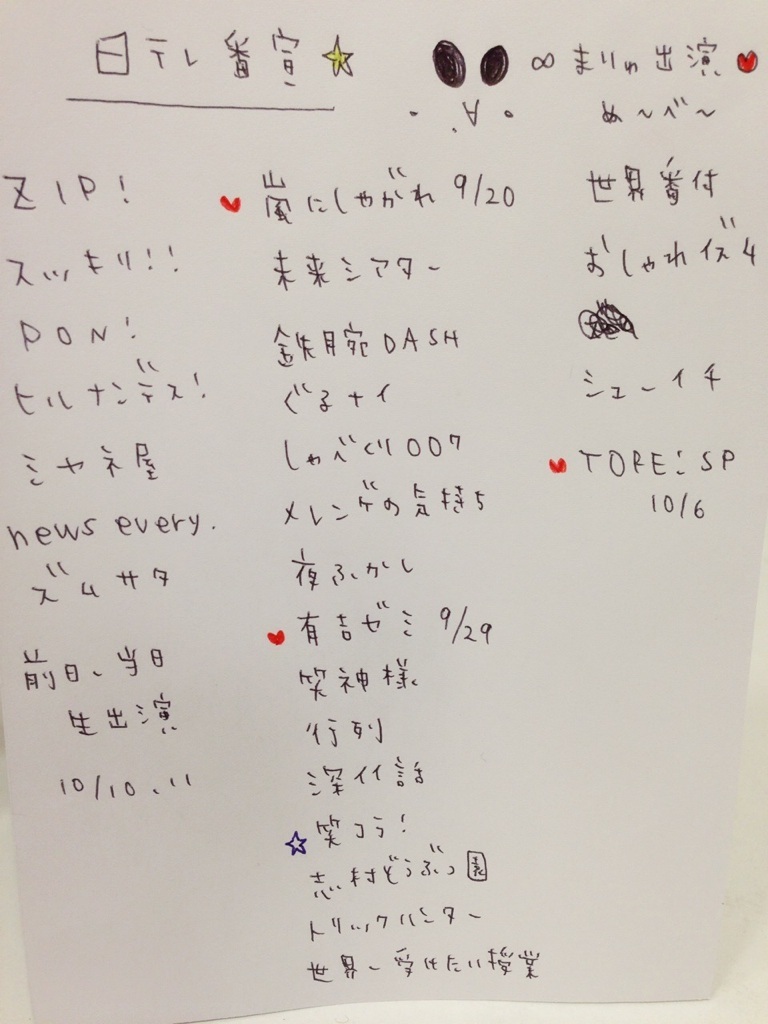 日テレ番宣
ZIP!
スッキリ!!
PON!
ヒルナンデス!
ミヤネ屋
news every.
ズムサタ
前日、当日
生出演
10/10、11
嵐にしやがれ 9/20
未来シアター
鉄腕DASH
ぐるナイ
しゃべくり007
メレンゲの気持ち
夜ふかし
有吉ゼミ 9/29
笑神様
行列
深イイ話
笑コラ!
志村どうぶつ園
トリックハンター
世界一受けたい授業
∞まりゅ出演
ぬ～べ～
世界番付
おしゃれイズム
シューイチ
TORE!SP
10/6